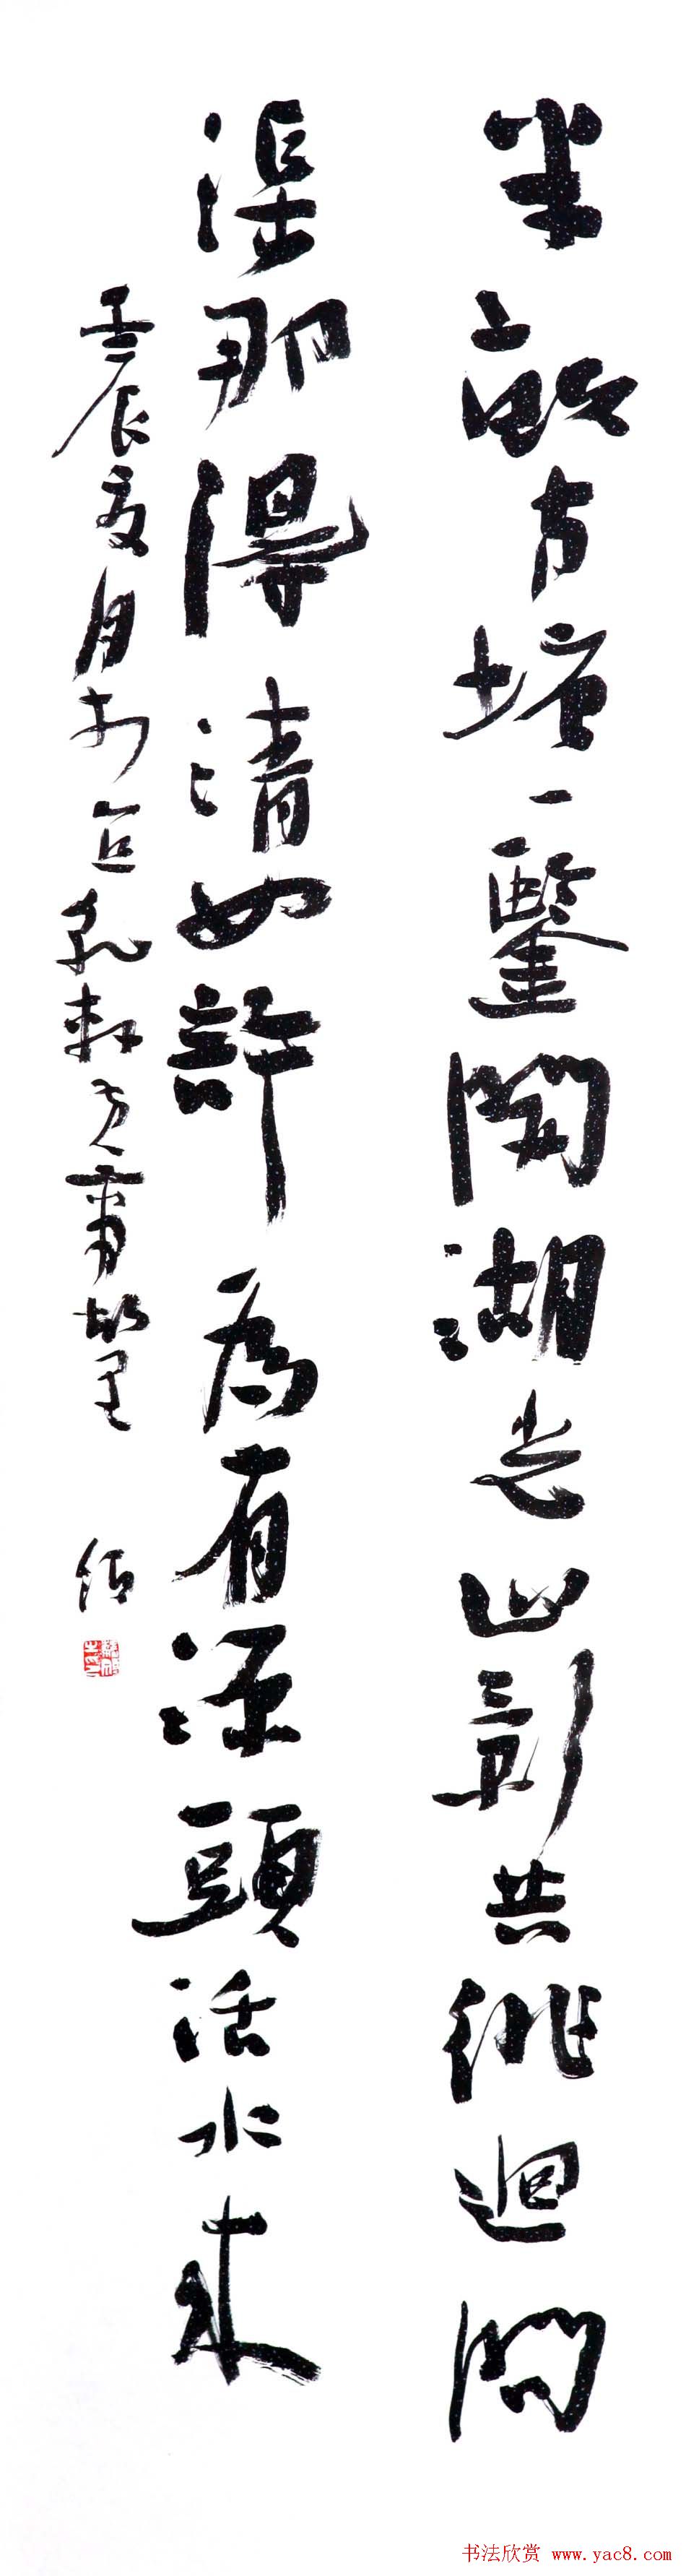 半畝方塘一鑒開湖光山影共徘迴問
渠那得清如許為有源頭活水來
壬辰夏月於
书法欣赏 www.yac8.com